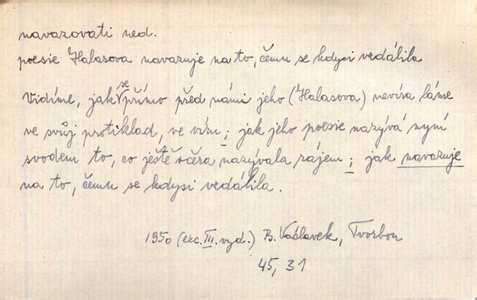 navazovati ned.
poesie Halasova navazuje na to, čemu se kdysi vzdálila
Vidíme, jak se přímo před námi jeho (Halasova) nevíra láme
ve svůj protiklad, ve víru; jak jeho poesie nazývá nyní
svodem to, co ještě včera nazývala rájem; jak navazuje
na to, čemu se kdysi vzdálila.
1950 (exc. III. vyd.) B. Václavek, Tvorbou
45, 31